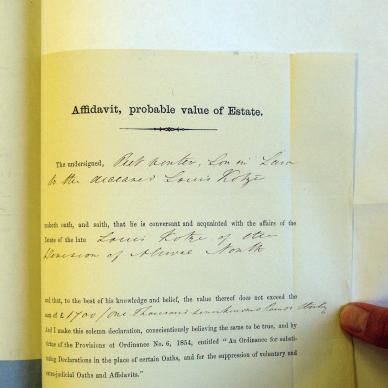 Affidavit, probable value of Estate.
The undersigned, Piet Venter, Son in Law
to the deceased Louis Kotzé
maketh oath, and saith, that he is conversant and acquainted with the affairs of the
Estate of the late Louis Kotze of the
Division of Aliwal North
and that, to the best of his knowledge and belief, the value thereof does not exceed the
sum of £1700/One Thousand seven hundred
And I make this solemn declaration, conscientiously believing the same to be true, and by
virtue of the Provisions of Ordinance No. 6, 1854, entitled "An Ordinance for substi-
tuting Declarations in the place of certain Oaths, and for the suppression of voluntary and
extra-judicial Oaths and Affidavits."